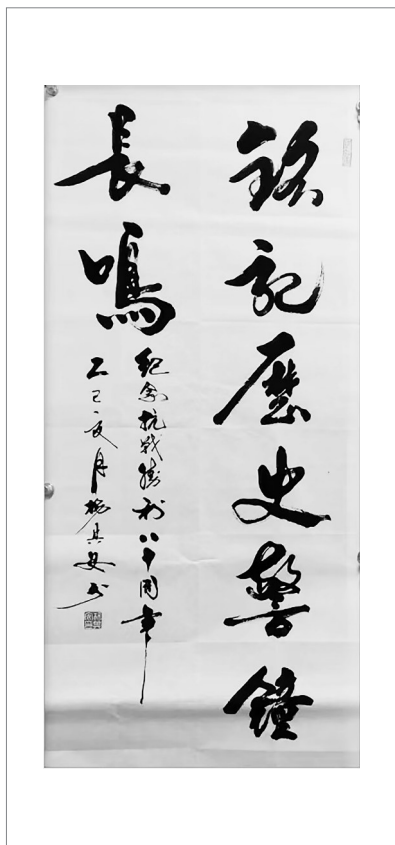 銘記歷史警鐘
長鳴
紀念抗戰勝利八十周年
乙巳夏月楊其書